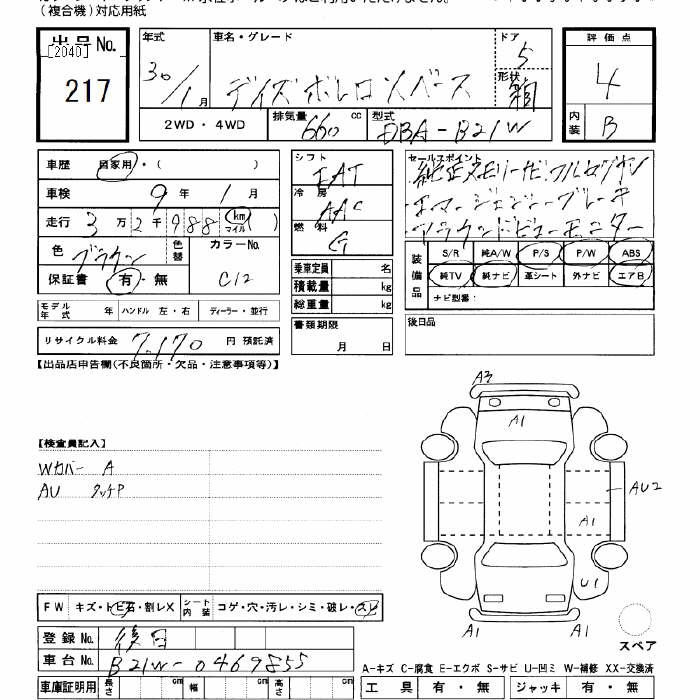 (複合機)対応用紙
出品No.
[2040]
217
年式
30/1月
車名・グレード
デイズ ボレロ Xベース
ドア
5
形状
箱
評価点
4
内装
B
2WD・4WD
排気量 660 cc
型式 DBA-B21W
車歴 自家用・( )
車検 9年 1月
走行 3万2千988 (km マイル)
色 ブラウン
色替
カラーNo.
C12
保証書 有・無
モデル年式 年 ハンドル 左・右 ディーラー・並行
リサイクル料金 7,170 円 預託済
シフト
EAT
冷房
AAC
燃料
G
乗車定員 名
積載量 kg
総重量 kg
書類期限
月 日
セールスポイント
純正メモリーナビ フルセグTV
・エマージェンシーブレーキ
・アラウンドビューモニター
装備品
S/R 純A/W P/S P/W ABS
純TV 純ナビ 革シート 外ナビ エアB
ナビ型番:
後日品
【出品店申告欄(不良箇所・欠品・注意事項等)】
【検査員記入】
Wカバー A
AU クッチP
A3
A1
AU2
A1
U1
A1
A1
スペア
FW キズ・トビ石・割レX
シート内装 コゲ・穴・汚レ・シミ・破レ・スレ
登録No. 後日
車台No. B21W-0469855
車庫証明用 長さ cm 幅 cm 高さ cm
A-キズ C-腐食 E-エクボ S-サビ U-凹ミ W-補修 XX-交換済
工具 有・無 ジャッキ 有・無